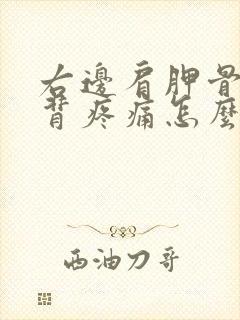 右邊肩胛骨
背疼痛怎麼
西油刀哥